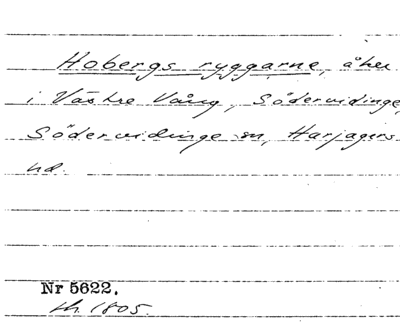 Hobergs ryggarne, åker
i Västre Vång, Södervidinge,
Södervidinge sn, Harjagers
hd.
Nr 5622.
th. 1805.